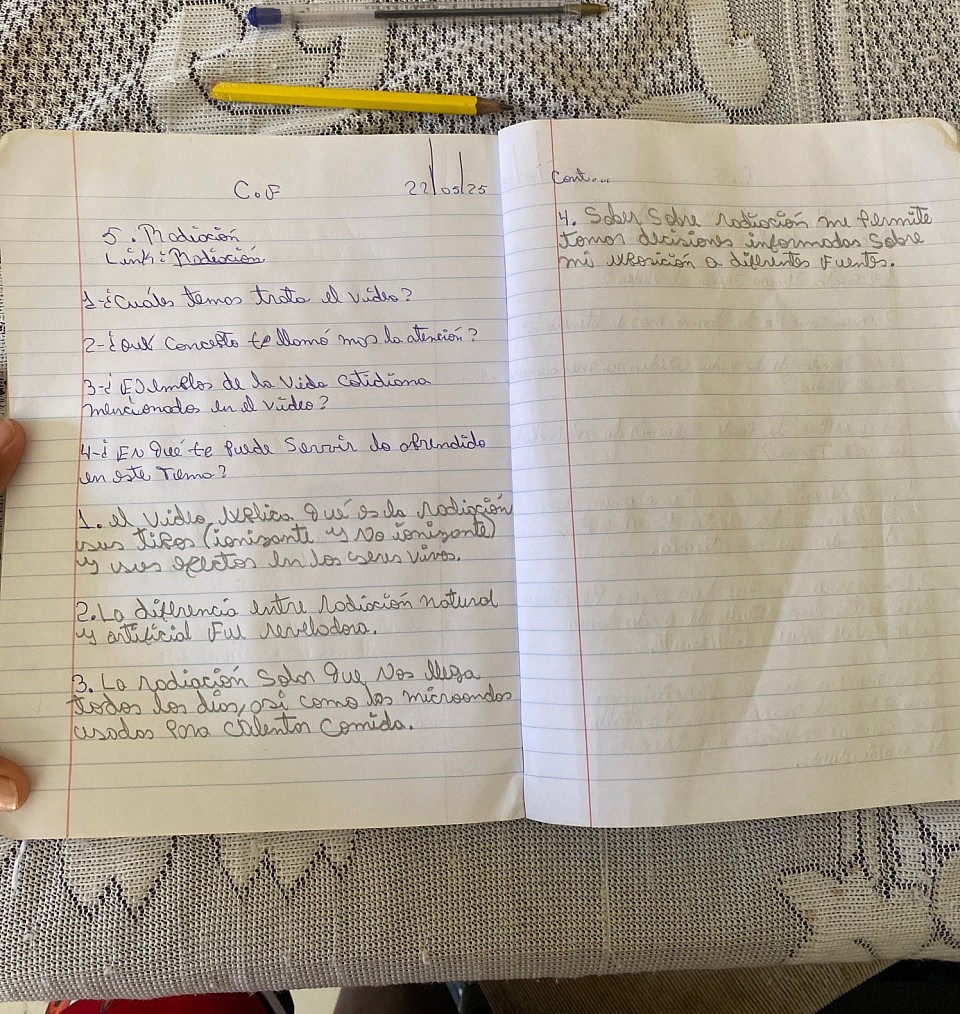 C.F
22/05/25
5. Radiación
Link: Radiación
1-¿Cuáles temas trata el video?
2-¿Qué concepto te llamó mas la atención?
3-¿Ejemplos de la vida cotidiana
mencionados en el video?
4-¿En qué te puede servir lo aprendido
en este Tema?
1. el video explica qué es la radiación
sus tipos (ionizante y no ionizante)
y sus efectos en los seres vivos.
2. La diferencia entre radiación natural
y artificial fue reveladora.
3. La radiación solar que nos llega
todos los días, así como los microondas
usados para calentar comida.
Cont...
4. Saber sobre radiación me permite
tomar decisiones informadas sobre
mi exposición a diferentes fuentes.